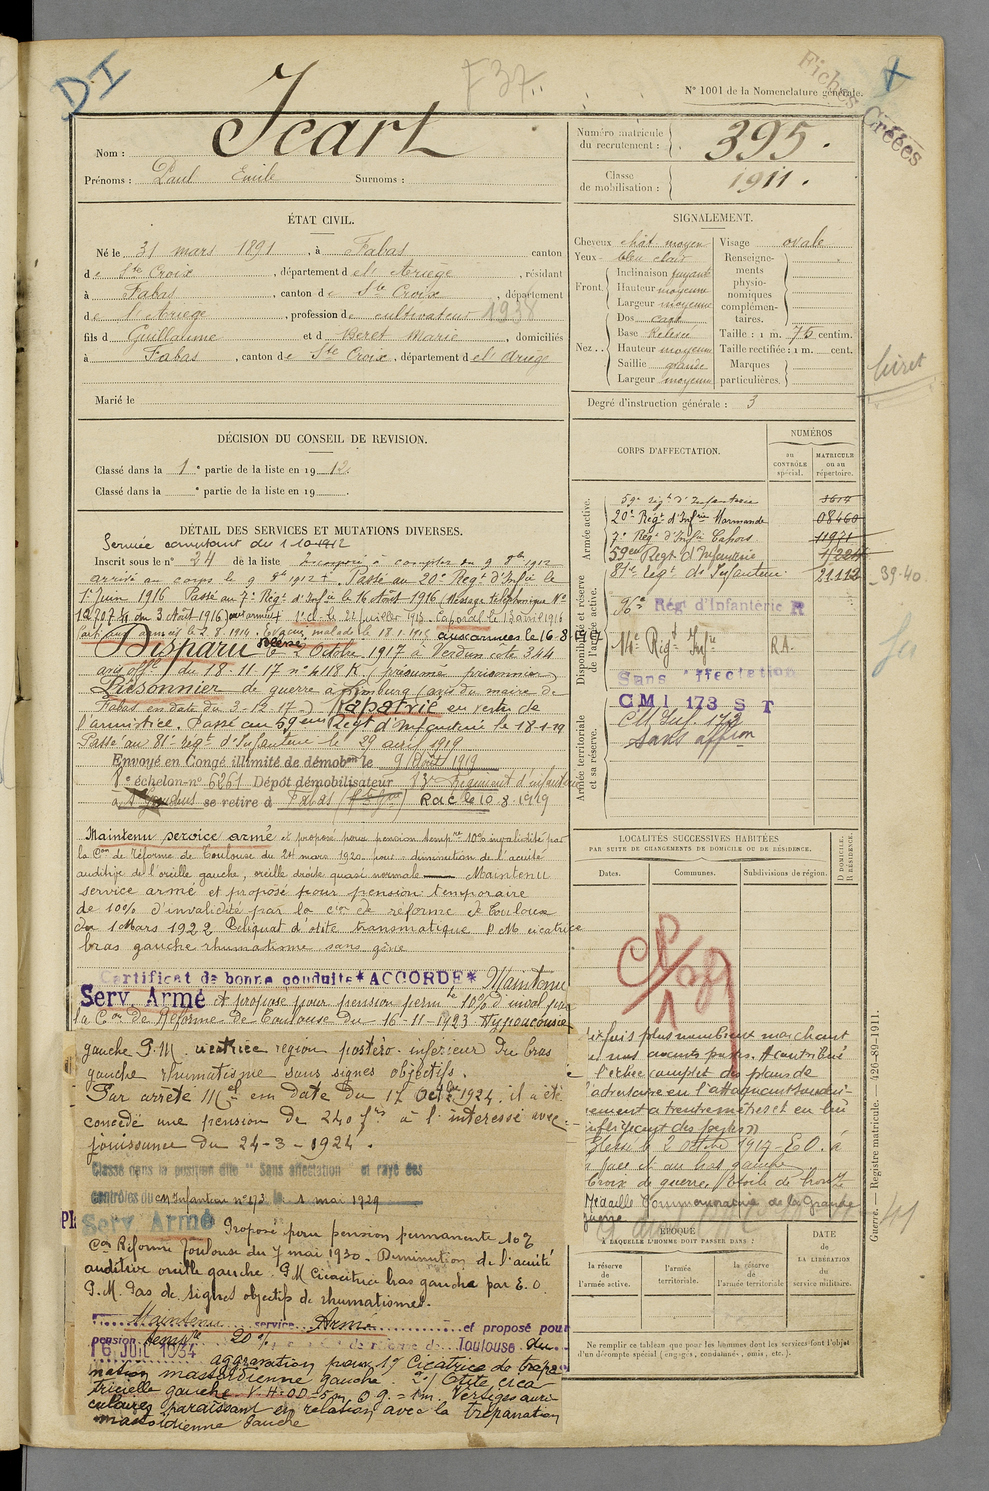 DI
F 37.
Fiches Créées
N° 1001 de la Nomenclature générale.
Nom : Icart
Prénoms : Paul Emile Surnoms :
Numéro matricule du recrutement : 395.
Classe de mobilisation : 1911.
ÉTAT CIVIL.
Né le 31 mars 1891, à Fabas canton
de Ste Croix, département de l'Ariège, résidant
à Fabas, canton de Ste Croix, département
de l'Ariège, profession de cultivateur 1938
fils de Guillaume et de Beret Marie, domiciliés
à Fabas, canton de Ste Croix, département de l'Ariège
Marié le
SIGNALEMENT.
Cheveux chât. moyen
Yeux bleu clair
Front. Inclinaison fuyant
Hauteur moyenne
Largeur moyenne
Nez.. Dos cave
Base Relevée
Hauteur moyenne
Saillie grande
Largeur moyenne
Visage ovale
Renseignements physionomiques complémentaires.
Taille : 1 m. 76 centim.
Taille rectifiée : 1 m. cent.
Marques particulières.
Degré d'instruction générale : 3
livret
DÉCISION DU CONSEIL DE REVISION.
Classé dans la 1e partie de la liste en 1912.
Classé dans la e partie de la liste en 19 .
CORPS D'AFFECTATION.
NUMÉROS
au CONTRÔLE spécial.
MATRICULE ou au répertoire.
Armée active.
59e Régt d'Infanterie
20e Régt d'Infrie Marmande 08460
7e Régt d'Infie Cahors 11971
59eme Régt d'Infanterie
81e Régt d'Infanterie 21112
39-40
Disponibilité et réserve de l'armée active.
96e Régt d'Infanterie R
14e Régt Infie R.A.
Sans affectation
CMI 173 S T
CM Inf. 173
Sans affion
Armée territoriale et sa réserve.
DÉTAIL DES SERVICES ET MUTATIONS DIVERSES.
Service comptant du 1 10 1912
Inscrit sous le n° 34 de la liste Incorporé à compter du 9 8bre 1912
arrivé au corps le 9 8bre 1912. Passé au 20e Régt d'Infie le
1er Juin 1916 Passé au 7e Régt d'Inf le 16 Août 1916 (Message téléphonique N°
12707 4/1 du 3 Août 1916) 1e cl. le 21 juillet 1915. Caporal le 13 avril 1916
Parti aux armées le 2.8.1914. Evacué malade le 18.1.1915 aux armées le 16-8-1917
Disparu Blessé le 2 Octobre 1917 à Verdun côte 344
avis offel du 18-11-17 n° 4118 K (présumé prisonnier)
Prisonnier de guerre à Limburg (avis du maire de
Fabas en date du 3-12-17-) Rapatrié en vertu de
l'armistice. Passé au 59eme Régt d'Infanterie le 18-1-19
Passé au 81e Régt d'Infanterie le 29 avril 1919
Envoyé en Congé illimité de démobon le 9 Août 1919
8e échelon n° 6261 Dépôt démobilisateur 83e Régiment d'infanterie
à St Gaudens se retire à Fabas RaC le 10.8.1919
Maintenu service armé et proposé pour pension tempre 10% invalidité par
la Con de Réforme de Toulouse du 24 mars 1920. pour : diminution de l'acuité
auditive de l'oreille gauche, oreille droite quasi normale Maintenu
service armé et proposé pour pension temporaire
de 10% d'invalidité par la con de réforme de Toulouse
du 1 Mars 1922 Reliquat d'otite traumatique P.M. cicatrice
bras gauche rhumatisme sans gêne
Certificat de bonne conduite *ACCORDÉ* Maintenu
Serv. Armé et proposé pour pension permte 10% d'inval par
la Con de Réforme de Toulouse du 16-11-1923 Hypoacousie
gauche P.M. cicatrice région postéro-inférieur du bras
gauche rhumatisme sans signes objectifs.
Par arrêté Mel en date du 17 Octbre 1924, il a été
concédé une pension de 240 frs à l'intéressé avec
jouissance du 24-3-1924.
Classé dans la position dite " Sans affectation et rayé des
contrôles du CM Infanterie n° 173 le 1 mai 1929
Serv. Armé Proposé pour pension permanente 10%
Con Réforme Toulouse du 7 mai 1930. Diminution de l'acuité
auditive oreille gauche. P.M. Cicatrice bras gauche par E.O.
P.M. Pas de signes objectifs de rhumatismes.
Maintenu service Armé et proposé pour
pension tempre 20% de réforme de Toulouse du
16 JUIL 1934 aggravation pour 1°/ Cicatrice de trépanation mastoïdienne gauche. 2°/ Otite cicatricielle gauche V.H.OD=5m, O.G.=1m. Vertiges auriculaires paraissant en relation avec la trépanation
mastoïdienne gauche
LOCALITÉS SUCCESSIVES HABITÉES
PAR SUITE DE CHANGEMENTS DE DOMICILE OU DE RÉSIDENCE.
Dates.
Communes.
Subdivisions de région.
D DOMICILE. R RÉSIDENCE.
plus nombreux marchant
A contribué
l'échec complet des plans de
l'adversaire en l'attaquant
à trente mètres et en lui
infligeant des pertes
Blessé le 2 octobre 1917 - E.O. à
la face et au bras gauche
Croix de guerre Etoile de bronze
Médaille Commémorative de la Grande
guerre
ÉPOQUE
À LAQUELLE L'HOMME DOIT PASSER DANS :
la réserve de l'armée active.
l'armée territoriale.
la réserve de l'armée territoriale
DATE de LA LIBÉRATION du service militaire.
Ne remplir ce tableau que pour les hommes dont les services font l'objet
d'un décompte spécial (engagés, condamnés, omis, etc.).
Guerre. — Registre matricule. — 426-89-1911.